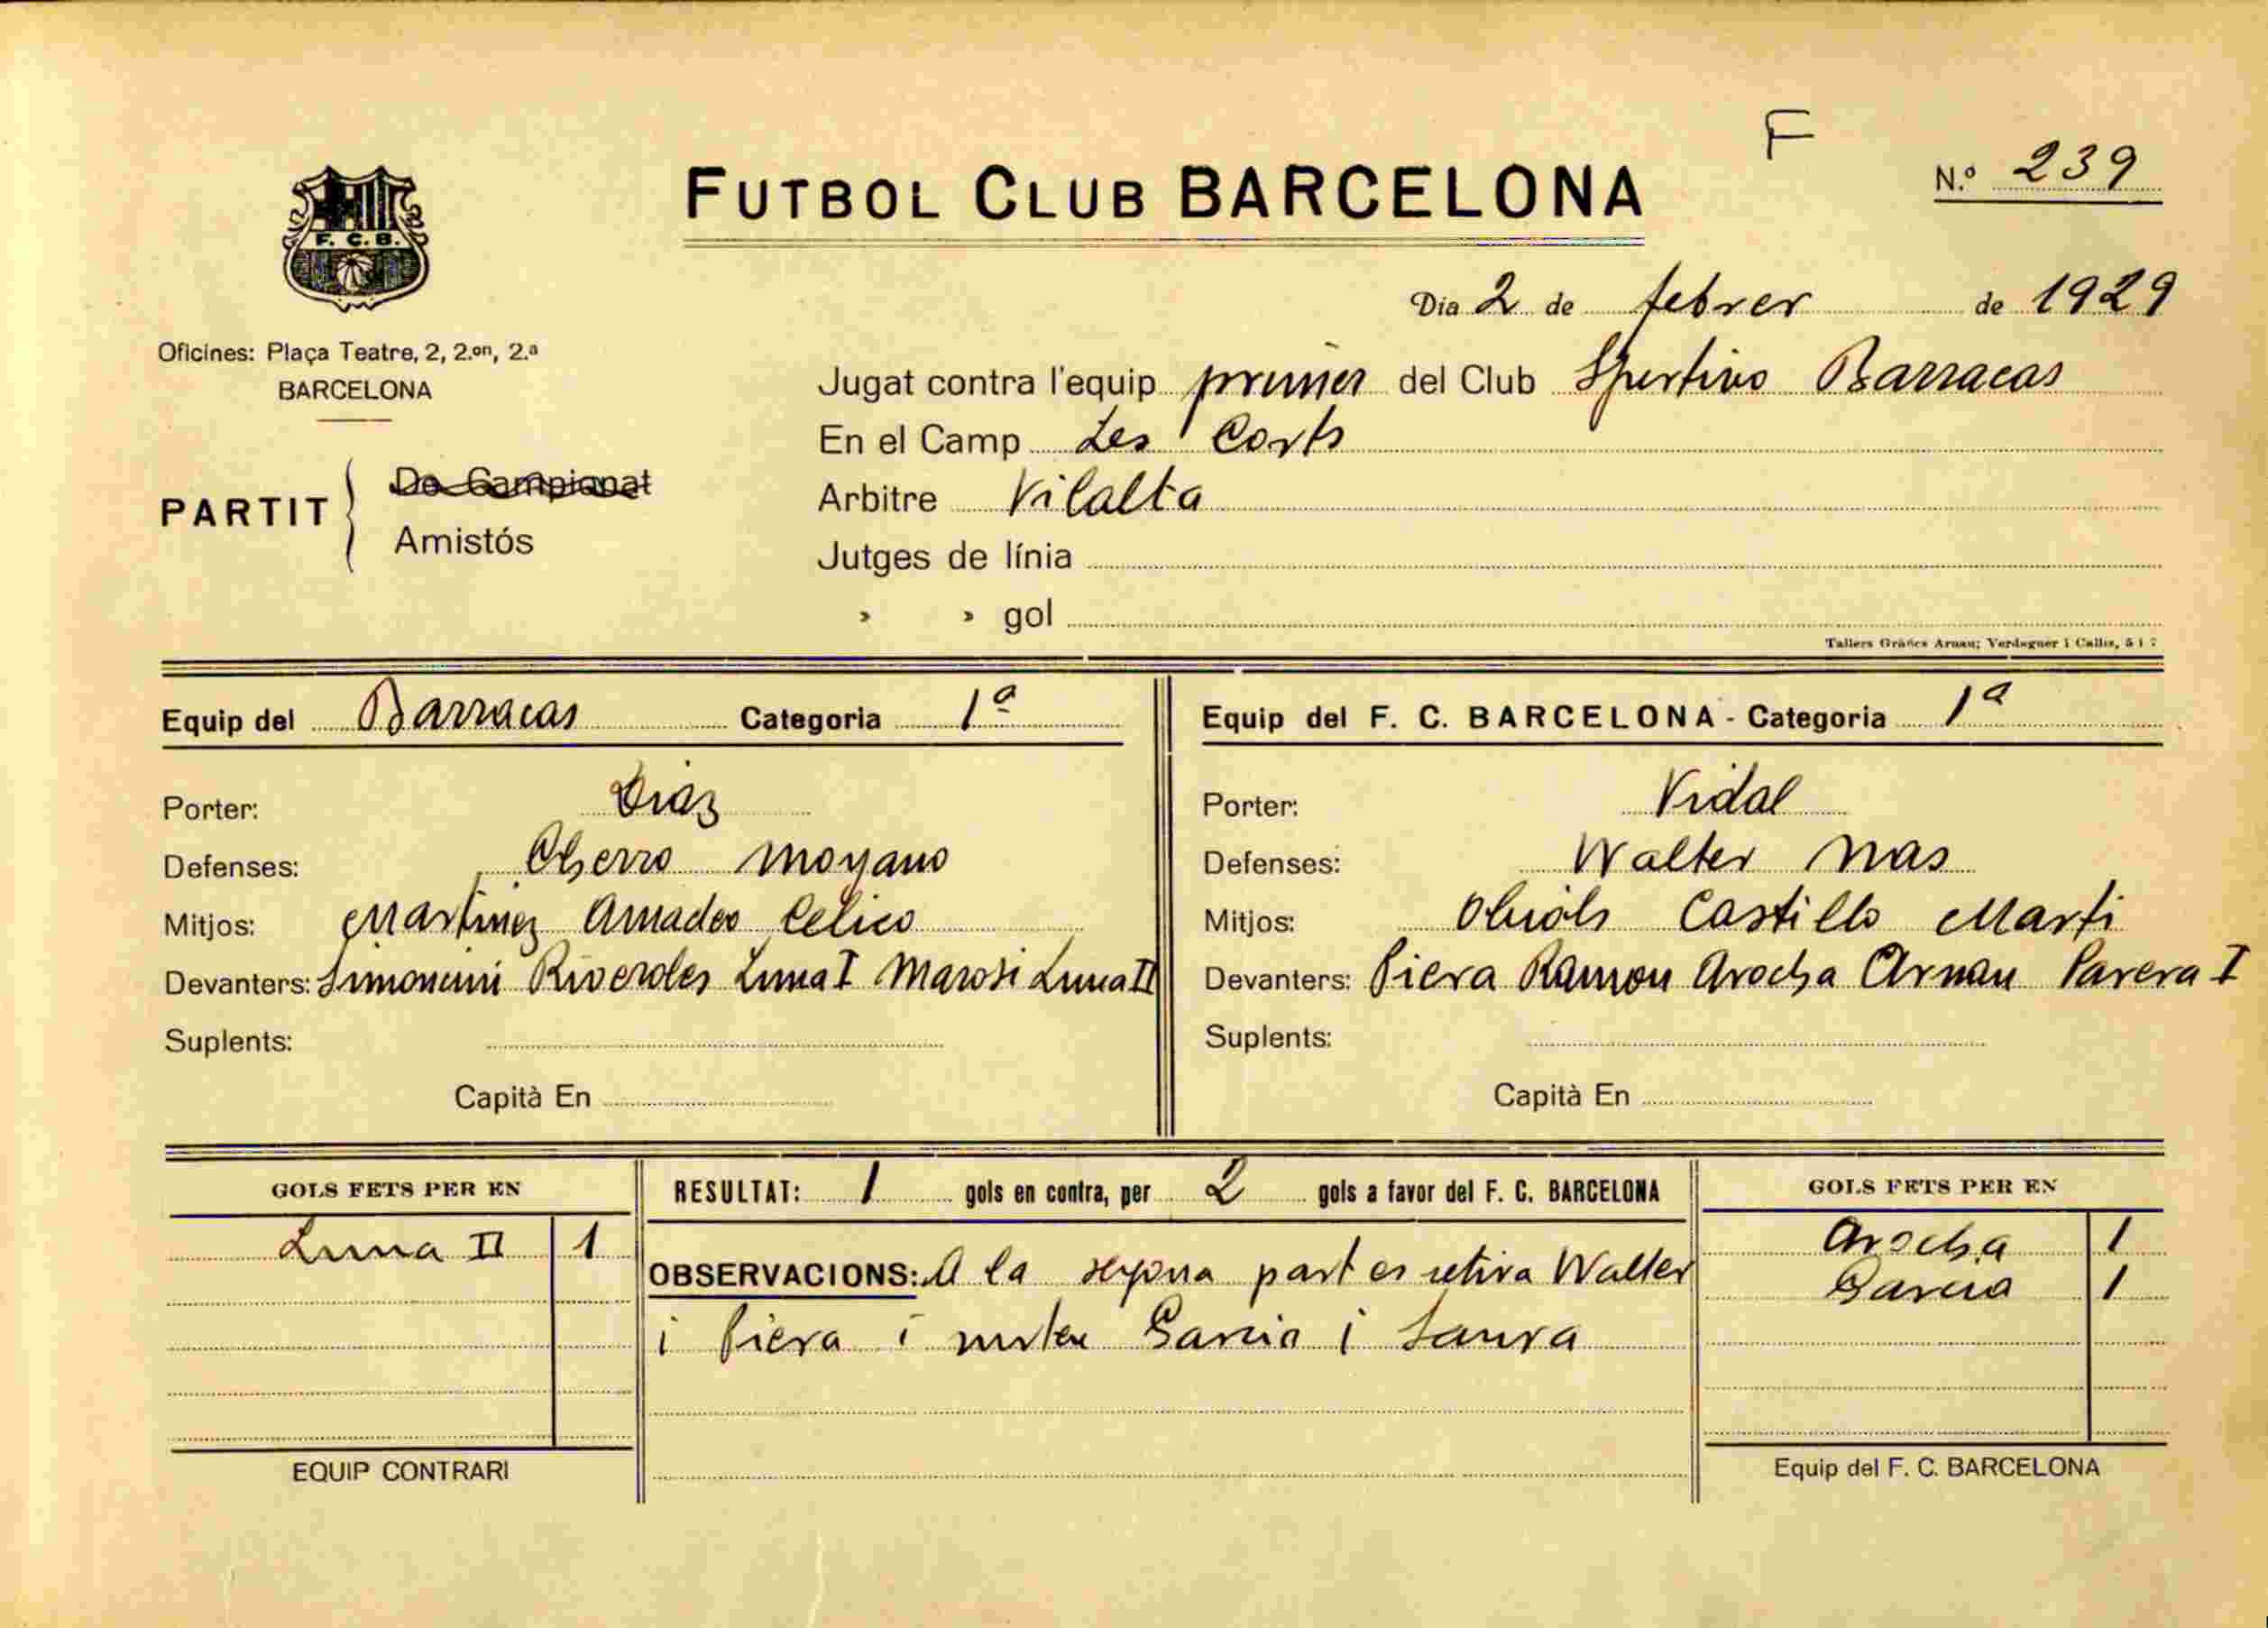 F
FUTBOL CLUB BARCELONA
N.º 239
F. C. B.
Dia 2 de febrer de 1929
Oficines: Plaça Teatre, 2, 2.on, 2.a
BARCELONA
Jugat contra l'equip primer del Club Sportivo Barracas
En el Camp Les Corts
PARTIT
De Campionat
Amistós
Arbitre Vilalta
Jutges de línia
» » gol
Tallers Gràfics Arnau; Verdaguer i Callís, 5 i 7
Equip del Barracas Categoria 1ª
Porter: Diaz
Defenses: Cherro Moyano
Mitjos: Martinez Amadeo Celico
Devanters: Simoncini Luna I Luna II
Suplents:
Capità En
Equip del F. C. BARCELONA - Categoria 1ª
Porter: Vidal
Defenses: Walter Mas
Mitjos: Obiols Castillo Marti
Devanters: Piera Ramon Arocha Arnau Parera I
Suplents:
Capità En
GOLS FETS PER EN
Luna II 1
EQUIP CONTRARI
RESULTAT: 1 gols en contra, per 2 gols a favor del F. C. BARCELONA
OBSERVACIONS: A la segona part es retira Walter
i Piera i Garcia i Saura
GOLS FETS PER EN
Arocha 1
Garcia 1
Equip del F. C. BARCELONA